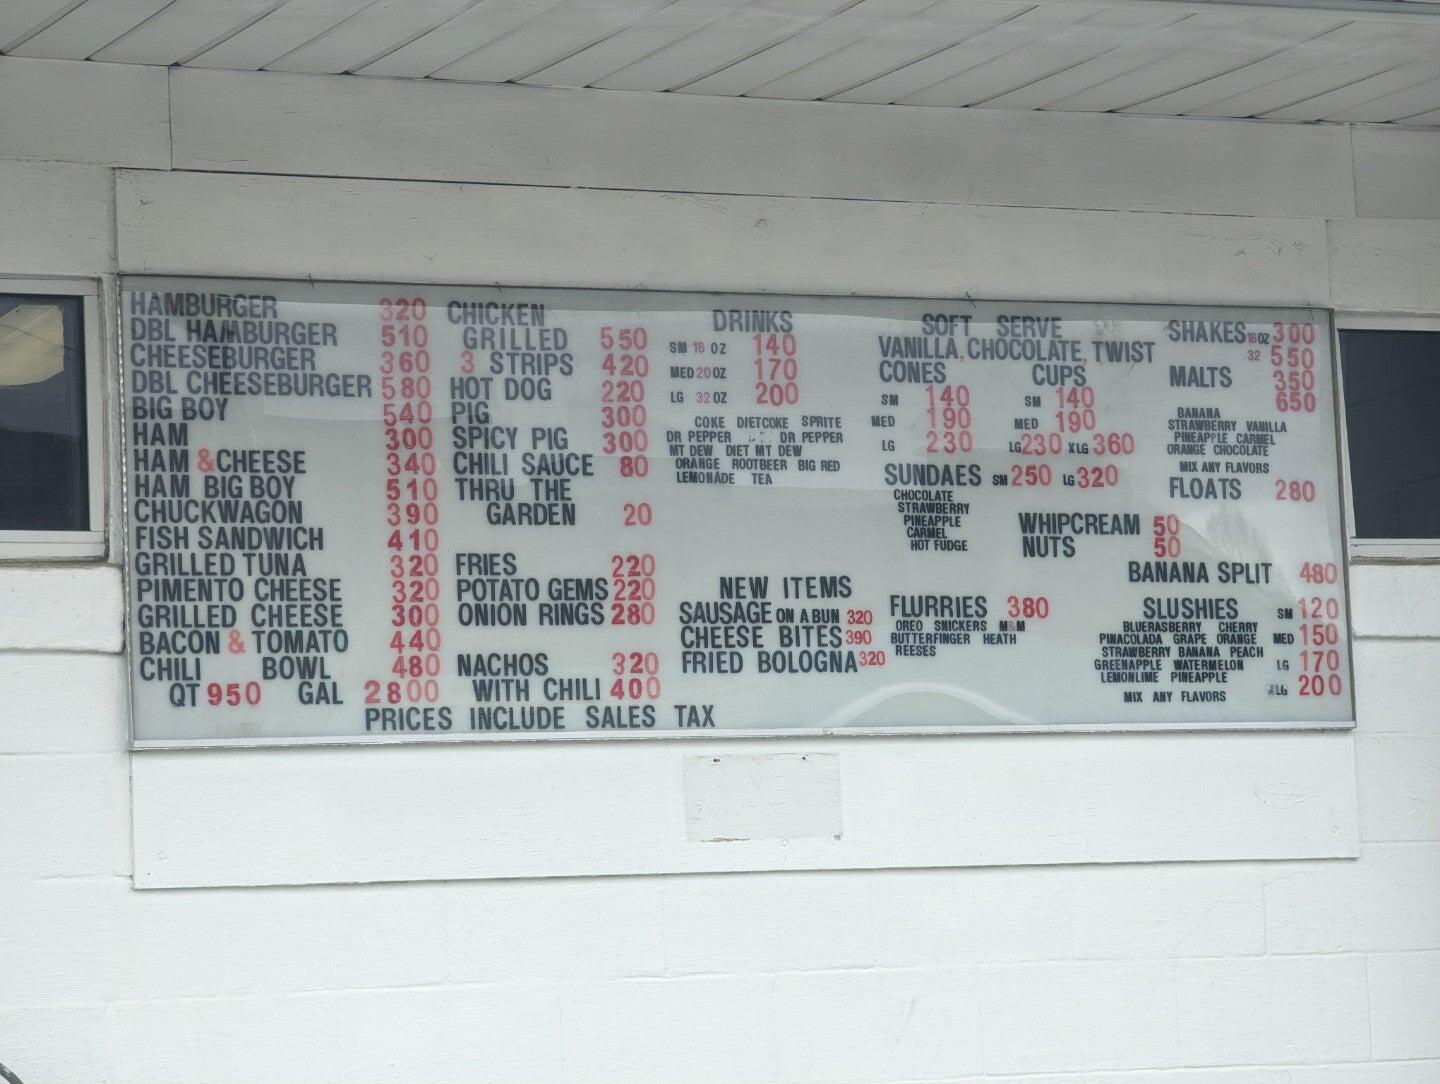 HAMBURGER 320
DBL HAMBURGER 510
CHEESEBURGER 360
DBL CHEESEBURGER 580
BIG BOY 540
HAM 300
HAM & CHEESE 340
HAM BIG BOY 510
CHUCKWAGON 390
FISH SANDWICH 410
GRILLED TUNA 320
PIMENTO CHEESE 320
GRILLED CHEESE 300
BACON & TOMATO 440
CHILI BOWL 480
QT 950 GAL 2800
CHICKEN
GRILLED 550
3 STRIPS 420
HOT DOG 220
PIG 300
SPICY PIG 300
CHILI SAUCE 80
THRU THE
GARDEN 20
FRIES 220
POTATO GEMS 220
ONION RINGS 280
NACHOS 320
WITH CHILI 400
PRICES INCLUDE SALES TAX
DRINKS
SM 16 OZ 140
MED 20 OZ 170
LG 32 OZ 200
COKE DIETCOKE SPRITE
DR PEPPER DR PEPPER
MT DEW DIET MT DEW
ORANGE ROOTBEER BIG RED
LEMONADE TEA
NEW ITEMS
SAUSAGE ON A BUN 320
CHEESE BITES 390
FRIED BOLOGNA 320
SOFT SERVE
VANILLA, CHOCOLATE, TWIST
CONES CUPS
SM 140 SM 140
MED 190 MED 190
LG 230 LG 230 XLG 360
SUNDAES SM 250 LG 320
CHOCOLATE
STRAWBERRY
PINEAPPLE
CARMEL
HOT FUDGE
WHIPCREAM 50
NUTS 50
FLURRIES 380
OREO SNICKERS M&M
BUTTERFINGER HEATH
REESES
SHAKES 16 OZ 300
32 550
MALTS 350
650
BANANA
STRAWBERRY VANILLA
PINEAPPLE CARMEL
ORANGE CHOCOLATE
MIX ANY FLAVORS
FLOATS 280
BANANA SPLIT 480
SLUSHIES SM 120
BLUERASBERRY CHERRY
PINACOLADA GRAPE ORANGE MED 150
STRAWBERRY BANANA PEACH
GREENAPPLE WATERMELON LG 170
LEMONLIME PINEAPPLE
MIX ANY FLAVORS XLG 200